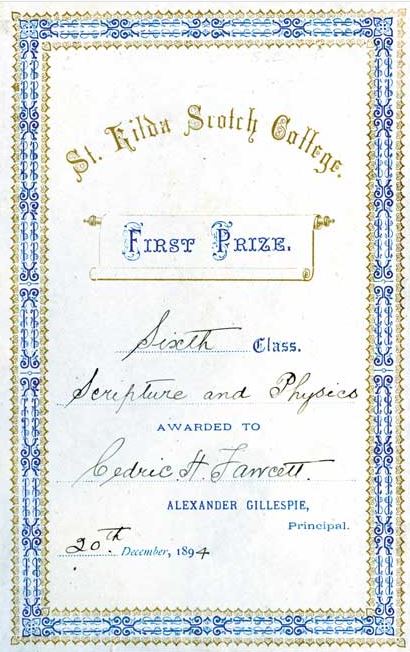 St. Kilda Scotch College.
First Prize.
Sixth Class.
Scripture and Physics
AWARDED TO
Cedric. H. Fawcett.
ALEXANDER GILLESPIE,
Principal.
20th December, 1894